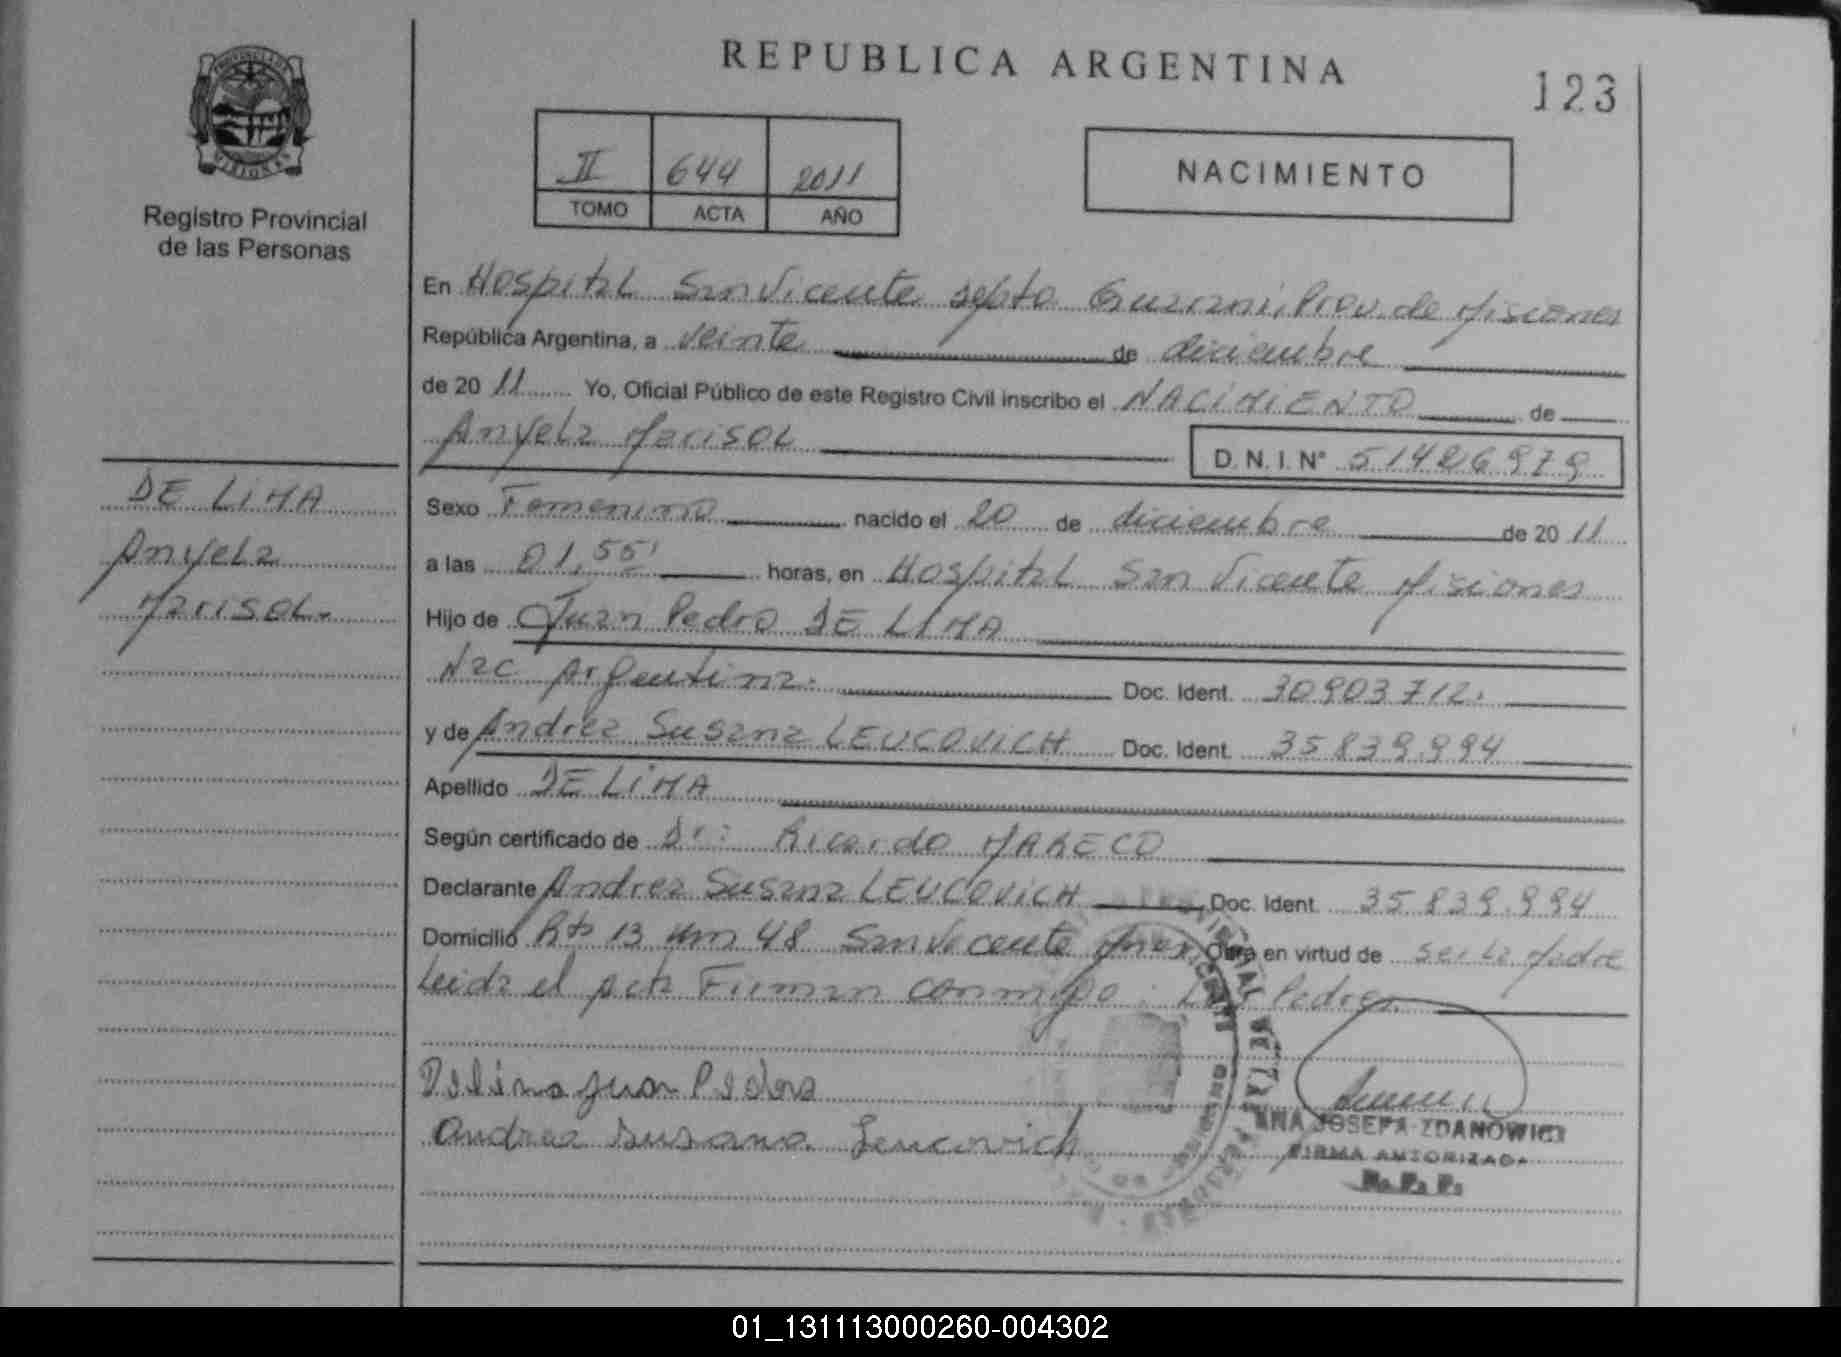 REPUBLICA ARGENTINA
123
Registro Provincial
de las Personas
II 644 2011
TOMO ACTA AÑO
NACIMIENTO
En Hospital San Vicente depto Guarani, Prov. de Misiones
República Argentina, a veinte de diciembre
de 20 11 Yo, Oficial Público de este Registro Civil inscribo el NACIMIENTO de
Anyela Marisol D. N. I. N° 51426979
DE LIMA
Anyela
Marisol.
Sexo Femenino nacido el 20 de diciembre de 20 11
a las 01,55' horas, en Hospital San Vicente Misiones
Hijo de Juan Pedro DE LIMA
Nac Argentina. Doc. Ident. 30903712.
y de Andrea Susana LEUCOVICH Doc. Ident. 35.839.994
Apellido DE LIMA
Según certificado de Dr: Ricardo MARECO
Declarante Andrea Susana LEUCOVICH Doc. Ident. 35.839.994
Domicilio Rta 13 km 48 San Vicente Mnes Obra en virtud de ser la Madre
Leida el acta Firman conmigo: Los Padres
Delima Juan Pedro
Andrea Susana Leucovich
ANA JOSEFA ZDANOWICZ
FIRMA AUTORIZADA
R. P. P.
01_131113000260-004302